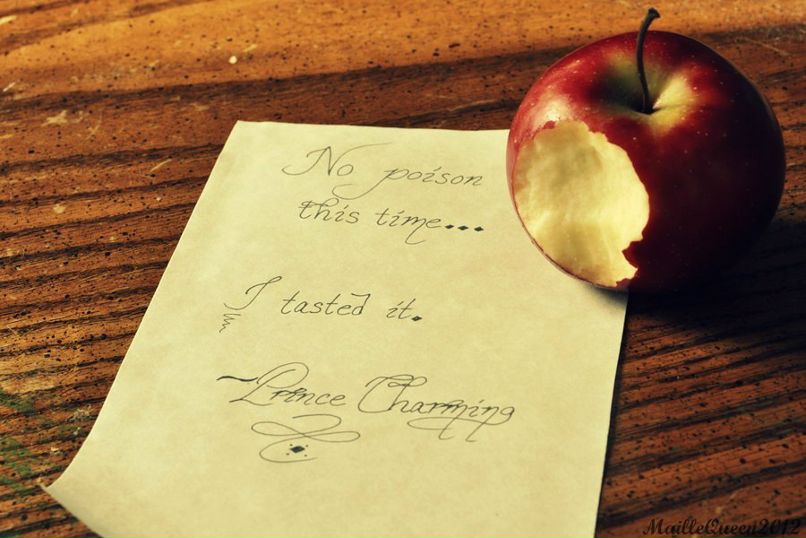 No poison
this time...
I tasted it.
~Prince Charming
MailleQueen2012